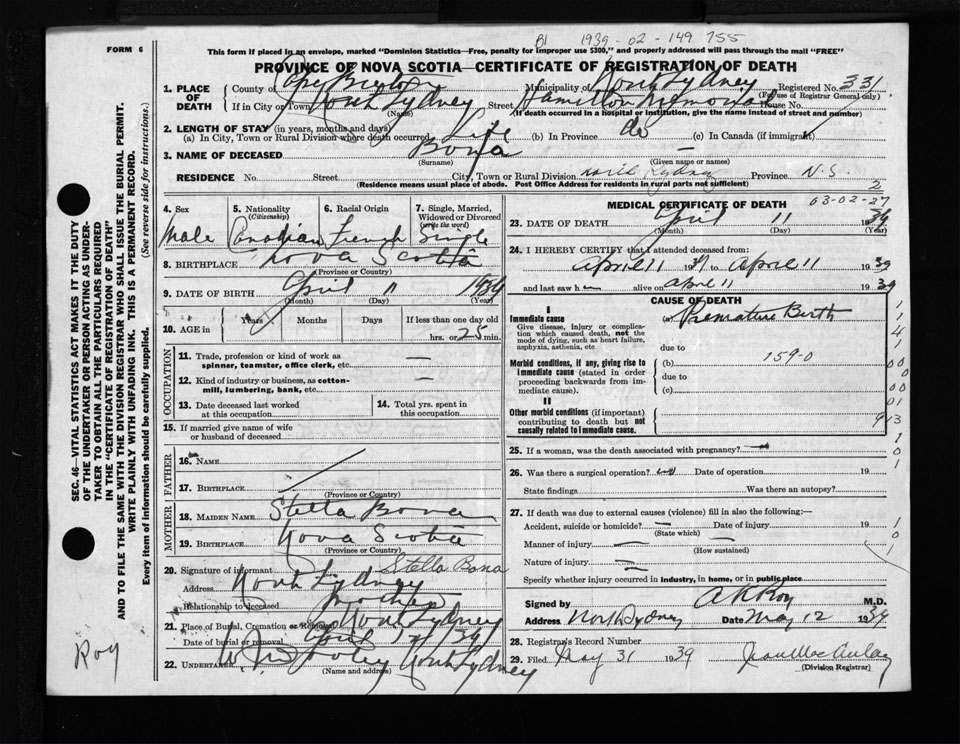 BI 1939-02-149 755
FORM 6
This form if placed in an envelope, marked "Dominion Statistics—Free, penalty for improper use $300," and properly addressed will pass through the mail "FREE"
PROVINCE OF NOVA SCOTIA—CERTIFICATE OF REGISTRATION OF DEATH
1. PLACE OF DEATH
County of Cape Breton Municipality of North Sydney Registered No. 331
(For use of Registrar General only)
If in City or Town North Sydney Street Hamilton Memorial House No.
(Name) (If death occurred in a hospital or institution, give the name instead of street and number)
2. LENGTH OF STAY (in years, months and days)
(a) In City, Town or Rural Division where death occurred Life (b) In Province do (c) In Canada (if immigrant)
3. NAME OF DECEASED Bona —
(Surname) (Given name or names)
RESIDENCE No. Street City, Town or Rural Division North Sydney Province N.S.
(Residence means usual place of abode. Post Office Address for residents in rural parts not sufficient)
2
63-02-27
4. Sex Male
5. Nationality (Citizenship) Canadian
6. Racial Origin French
7. Single, Married, Widowed or Divorced (write the word) Single
8. BIRTHPLACE Nova Scotia
(Province or County)
9. DATE OF BIRTH April 11 1939
(Month) (Day) (Year)
10. AGE in Years Months Days If less than one day old
hrs. or 25 min.
OCCUPATION
11. Trade, profession or kind of work as spinner, teamster, office clerk, etc. —
12. Kind of industry or business, as cotton-mill, lumbering, bank, etc. —
13. Date deceased last worked at this occupation
14. Total yrs. spent in this occupation
15. If married give name of wife or husband of deceased
FATHER
16. NAME
17. BIRTHPLACE
(Province or Country)
MOTHER
18. MAIDEN NAME Stella Bona
19. BIRTHPLACE Nova Scotia
(Province or Country)
20. Signature of informant Stella Bona
Address North Sydney
Relationship to deceased Mother
21. Place of Burial, Cremation or Removal North Sydney
Date of burial or removal April 12/39
22. UNDERTAKER Foley North Sydney
(Name and address)
MEDICAL CERTIFICATE OF DEATH
23. DATE OF DEATH April 11 1939
(Month) (Day) (Year)
24. I HEREBY CERTIFY that I attended deceased from:
April 11 1939 to April 11 1939
and last saw h alive on April 11 1939
CAUSE OF DEATH
I
Immediate cause (a) Premature Birth
Give disease, injury or complication which caused death, not the mode of dying, such as heart failure, asphyxia, asthenia, etc.
due to
Morbid conditions, if any, giving rise to immediate cause (stated in order proceeding backwards from immediate cause).
(b) 159-0
due to
(c)
II
Other morbid conditions (if important) contributing to death but not causally related to immediate cause.
25. If a woman, was the death associated with pregnancy? —
26. Was there a surgical operation? no Date of operation 19
State findings Was there an autopsy?
27. If death was due to external causes (violence) fill in also the following:—
Accident, suicide or homicide? — Date of injury 19
(State which)
Manner of injury —
(How sustained)
Nature of injury —
Specify whether injury occurred in industry, in home, or in public place
Signed by A K Roy M.D.
Address North Sydney Date May 12 1939
28. Registrar's Record Number
29. Filed May 31 1939 Jean MacAulay
(Division Registrar)
SEC. 46—VITAL STATISTICS ACT MAKES IT THE DUTY
OF THE UNDERTAKER OR PERSON ACTING AS UNDER-
TAKER TO OBTAIN ALL THE PARTICULARS REQUIRED
IN THE "CERTIFICATE OF REGISTRATION OF DEATH"
AND TO FILE THE SAME WITH THE DIVISION REGISTRAR WHO SHALL ISSUE THE BURIAL PERMIT.
WRITE PLAINLY WITH UNFADING INK. THIS IS A PERMANENT RECORD.
Every item of information should be carefully supplied. (See reverse side for instructions.)
Roy